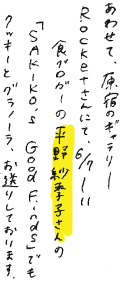 あわせて、原宿のギャラリー
ROCKETさんにて、6/7ー11
食ブロガーの平野紗季子さんの
「SAKIKO's Good Finds」でも
クッキーとグラノーラ、お送りしております。